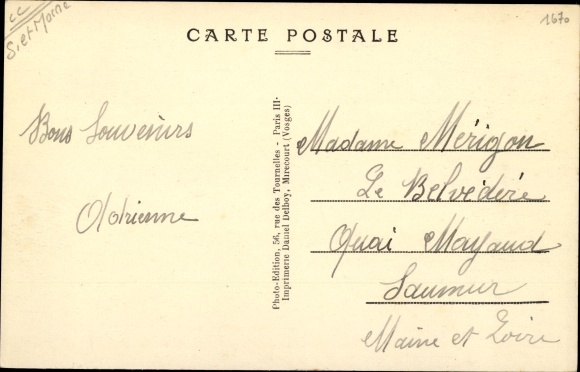 CC
S. et Marne
1670
CARTE POSTALE
Bons Souvenirs
Adrienne
Photo-Edition, 56, rue des Tournelles - Paris III-
Imprimerie Daniel Delboy, Mirecourt (Vosges)
Madame Mérigon
Le Belvédère
Quai Mayaud
Saumur
Maine et Loire